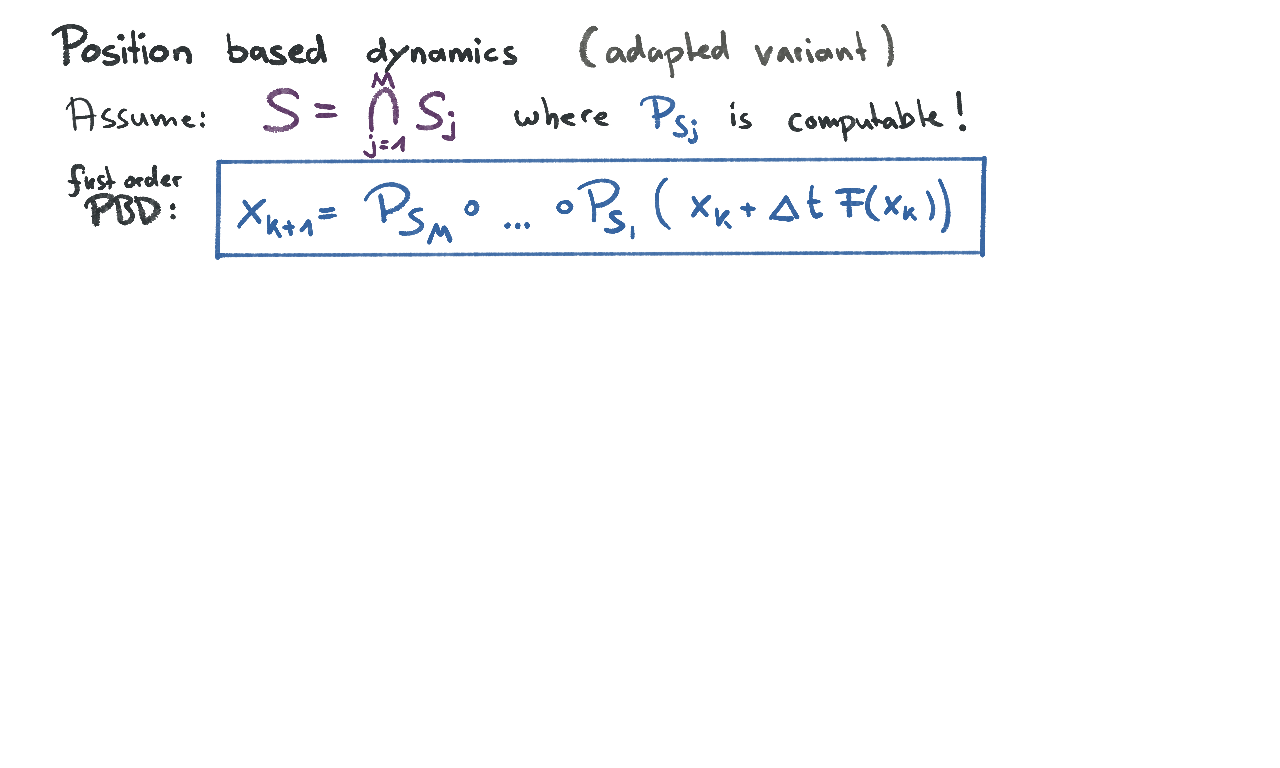 Position based dynamics (adapted variant)
Assume: S = ⋂_{j=1}^{M} S_j where P_{S_j} is computable!
first order
PBD: x_{k+1} = P_{S_M} ∘ ... ∘ P_{S_1} ( x_k + Δt F(x_k))